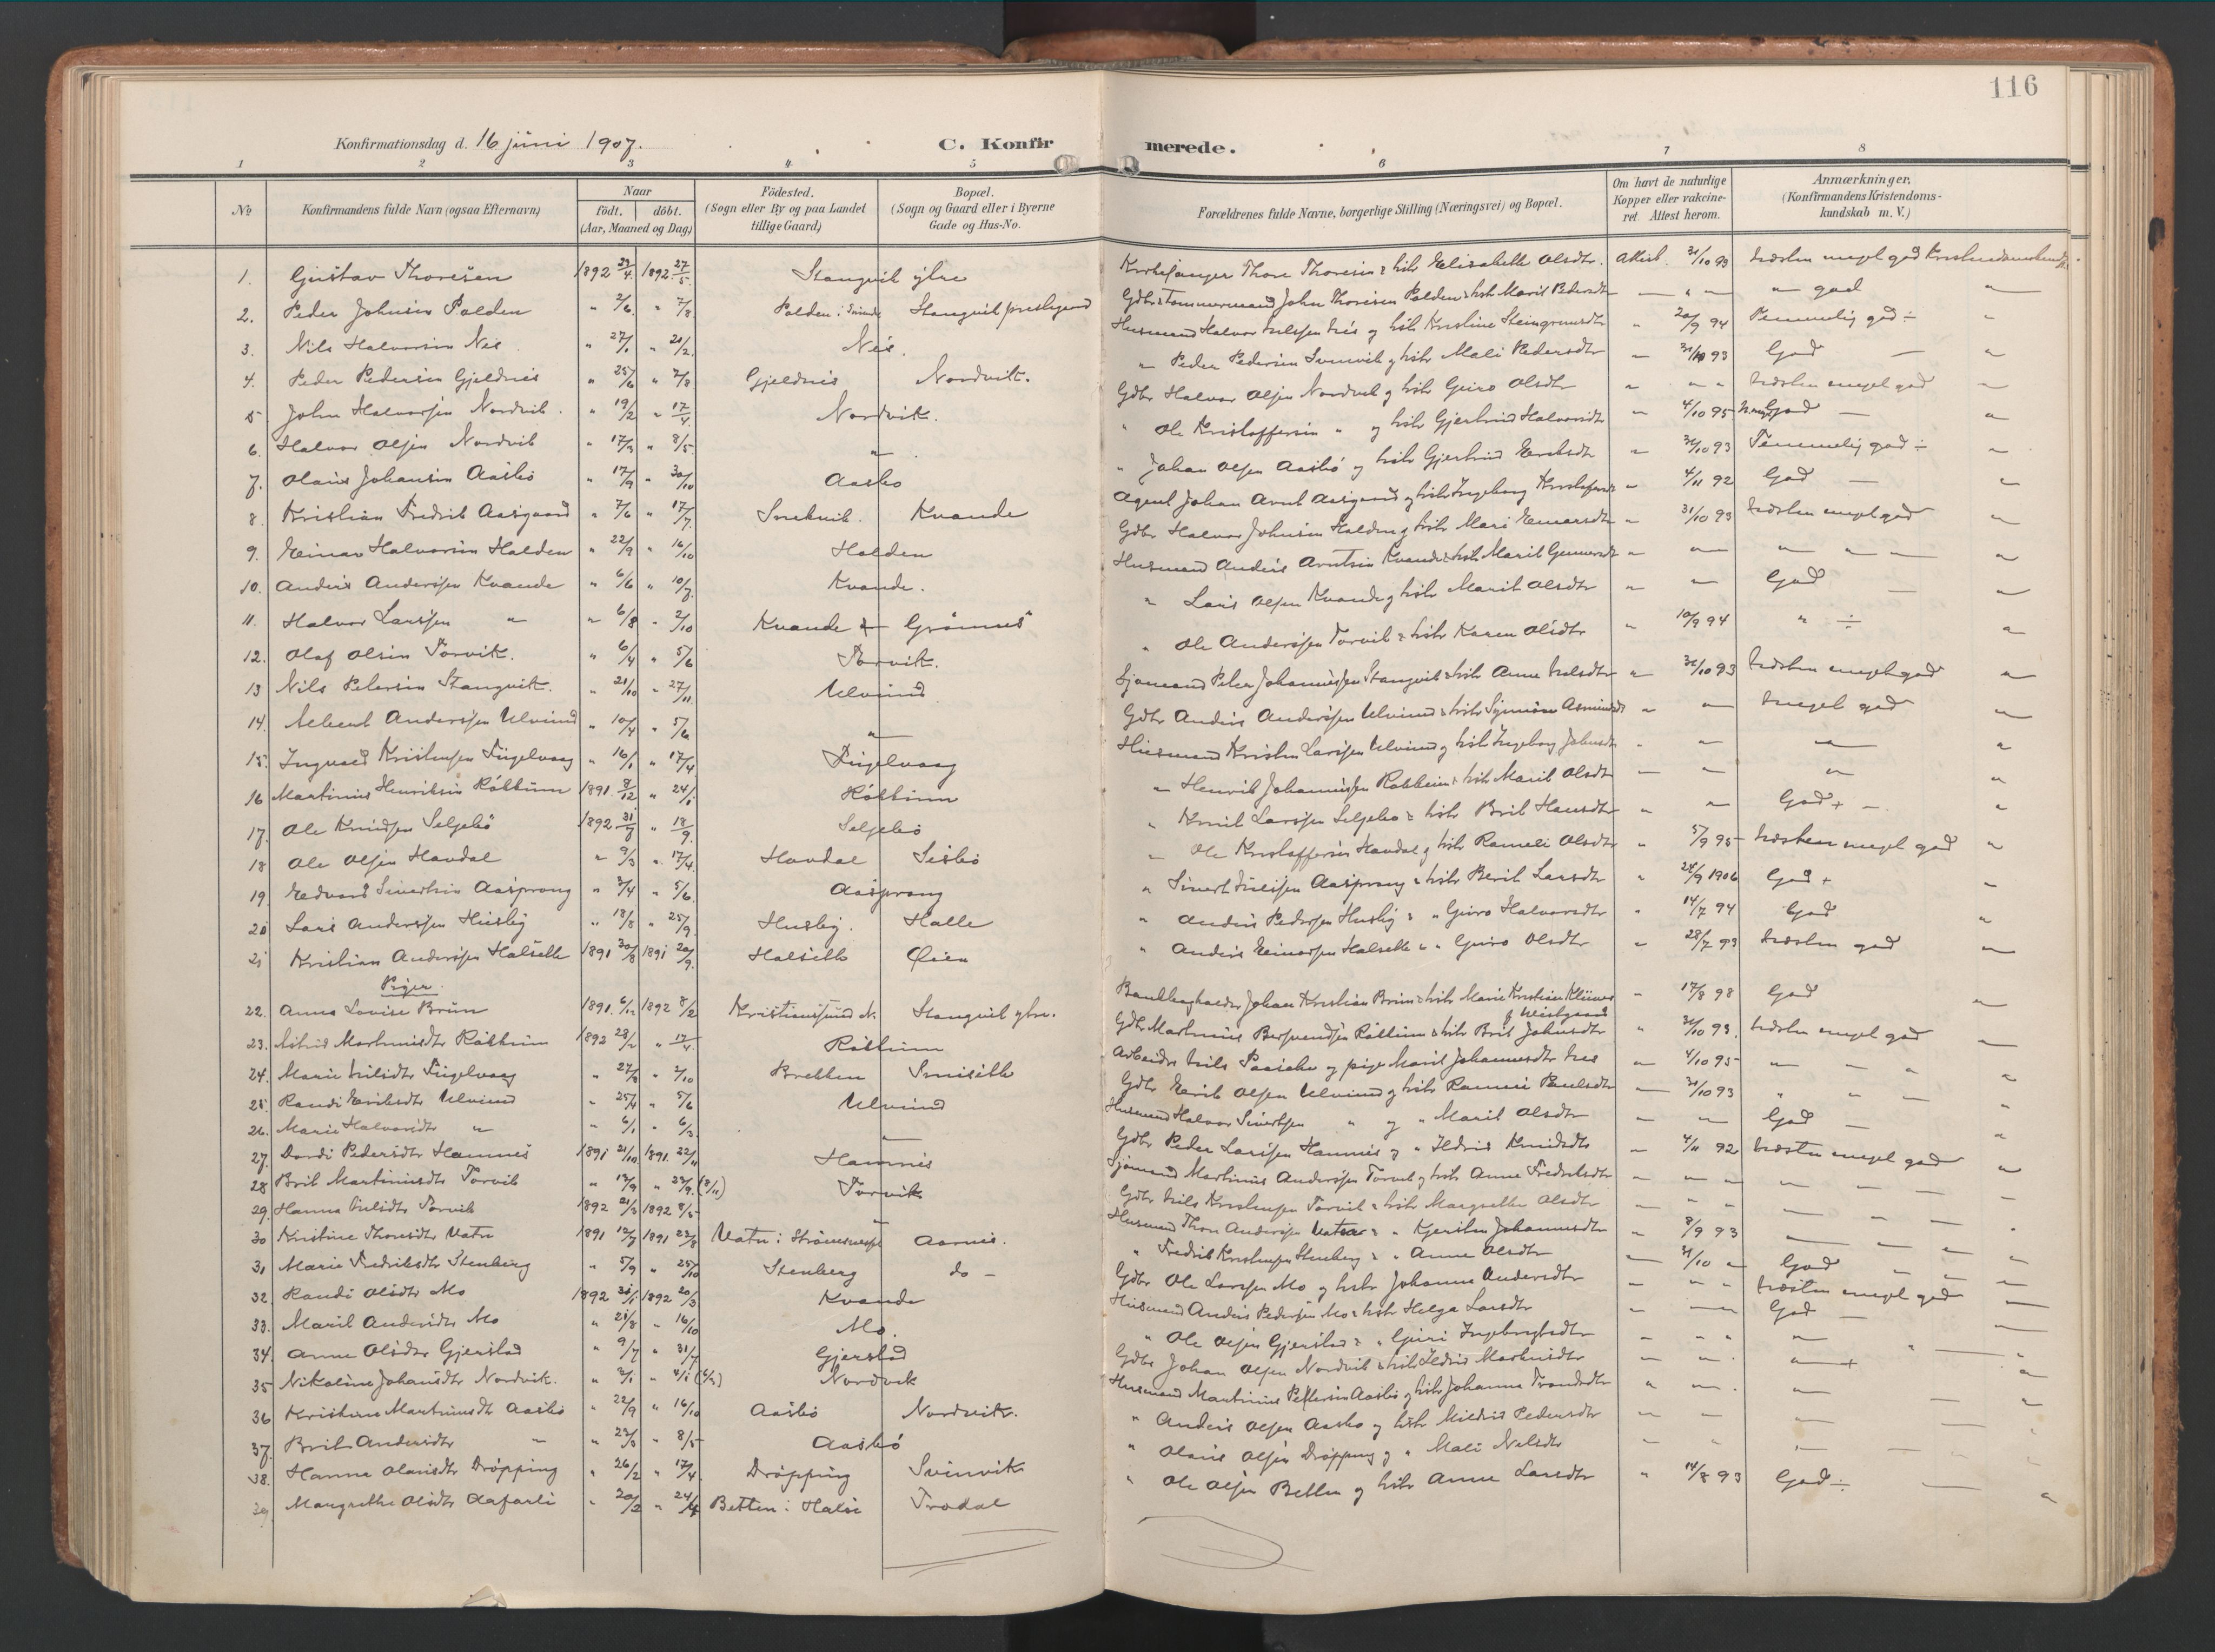 116
Konfirmationsdag d. 16 juni 1907.
C. Konfir merede.
1 2 3 4 5 6 7 8
No
Konfirmandens fulde Navn (ogsaa Efternavn)
Naar
födt. döbt.
(Aar, Maaned og Dag)
Födested.
(Sogn eller By og paa Landet
tillige Gaard)
Bopæl.
(Sogn og Gaard eller i Byerne
Gade og Hus-No.
Forældrenes fulde Navne, borgerlige Stilling (Næringsvei) og Bopæl.
Om havt de naturlige
Kopper eller vakcine-
ret Attest herom.
Anmærkninger,
(Konfirmandens Kristendoms-
kundskab m. V.)
1. Gustav Thoresen 1892 1892 27/5 Stangvik ytre Kirkesanger Thore Thoresen & hstr Elisabeth Olsdtr. Attest. 31/10 93 næsten meget god
2. Peder Johnsen Polden " 2/6 " 7/8 Polden i Stangvik prestegaard Gdbr & Tømmermand John Thoresen Polden & hst Marit Pedersdtr " god
3. Nils Halvorsen Nes " 27/1 " 21/2 Nes. Husmand Halvor Nilssen Nes og hstr Kristine Steingrimsdtr " 20/9 94 Temmelig god ÷
4. Peder Pedersen Gjeldnes " 25/6 " 7/8 Gjeldnes Nordvik. " Peder Pedersen Svinvik og hstr Mali Pedersdtr " 31/10 93 God
5 John Halvorsen Nordvik. " 19/2 " 17/4 Nordvik. Gdbr Halvor Olsen Nordvik og hstr Guro Olsdtr " " " næsten meget god
6. Halvor Olsen Nordvik " 17/3 " 8/5 " " Ole Kristoffersen " og hstr Gjertrud Halvorsdtr " 4/10 95 God
7. Olaus Johansen Aasbö " 17/9 " 30/10 Aasbö " Johan Olsen Aasbö og hstr Gjertrud Eriksdtr " 31/10 93 Temmelig god ÷
8. Kristian Fredrik Aasgaard " 7/6 " 17/7 Kvande Agent Johan Arnt Aasgaard og hstr Ingeborg " 4/11 92 God
9. Einar Halvorsen Halden " 22/9 " 16/10 Halden Gdbr Halvor Johnsen Halden og hstr Mari Einarsdtr " 31/10 93 næsten meget god
10. Anders Anderssen Kvande " 6/6 " 10/7 Kvande. Husmand Anders Arntsen Kvande & hstr Marit Gunnarsdtr " " "
11. Halvor Larssen " " 6/8 " 2/10 Kvande Grönnes " Lars Olsen Kvande og hstr Marit Olsdtr " " God
12. Olaf Olsen Torvik. " 6/4 " 5/6 Torvik. " Ole Anderssen Torvik & hstr Karen Olsdtr " 10/9 94 " ÷
13 Nils Petersen Stangvik. " 21/10 " 27/11 Ulvund Sjömand Peter Johannessen Stangvik & hstr Anne Nilsdtr " 31/10 93 næsten meget god
14. Anderssen Ulvund " 10/4 " 5/6 " Gdbr Anders Anderssen Ulvund & hstr Asmundsdtr " " meget god
15. Ingvald Kristensen Fugelvaag " 16/1 " 17/4 Fugelvaag Husmand Kristen Larssen Ulvund og hstr Ingeborg Johnsdtr " " "
16 Martinus Henriksen Rökkum 1891. 8/12 " 24/1 Rökkum " Henrik Johannessen Rökkum & hstr Marit Olsdtr " " "
17. Ole Knudsen Seljebö 1892 " 18/9 Seljebö " Knut Larssen Seljebö & hstr Brit Hansdtr " " God +
18 Ole Olsen Havdal " 9/3 " 17/4 Havdal Ole Kristoffersen Havdal og hstr Rameli Olsdtr " 5/9 95 næsten meget god
19. Edvard Sivertsen Aasprong " 3/4 " 5/6 Aasprong " Sivert Aasprong & hstr Berit Larsdtr " 28/9 1906 God +
20 Lars Anderssen Husby " 18/8 " 25/9 Husby. Halle " Anders Pedersen Husby & " Guro Halvorsdtr " 14/7 94 God
21 Kristian Anderssen Halseth 1891 30/8 1891 20/9 Halseth Øien " Anders Einarsen Halseth & " Guro Olsdtr " 28/7 93 næsten god
Piger.
22. Anna Lovise Brun 1891. 6/12 1892 8/2 Kristianssund N. Stangvik ytre. Bankbogholder Johan Kristian Brun & hstr Marie Kristine " 17/8 98 God
23. Astrid Martinusdtr Rökkum 1892 28/2 " 17/4 Rökkum Gdbr Martinus Rökkum & hstr Brit Johnsdtr " 31/10 93. næsten meget god
24. Marie Nilsdtr Fugelvaag " 27/8 " 2/10 Brekken Arbeider Nils og pige Marit Johannesdtr Nes " 4/10 95 "
25. Randi Eriksdtr Ulvund " 25/4 " 5/6 Ulvund Gdbr Erik Olsen Ulvund og hstr " 31/10 93 "
26. Marie Halvorsdtr " " 6/1 " 6/3 " Husmand Halvor Sivertsen " og " Marit Olsdtr " " God
27. Dordi Pedersdtr Hamnes 1891 21/10 1891 22/11 Hamnes Gdbr Peder Larssen Hamnes og " Ildrid Knudsdtr " 4/11 92 næsten meget god
28 Brit Martinusdtr Torvik " 12/9 " Torvik Sjömand Martinus Anderssen Torvik og hstr Anne Fredriksdtr " " "
29. Hanna Nilsdtr Torvik 1892 21/3 1892 8/5 " Gdbr Nils Kristensen Torvik & hstr Margrethe Olsdtr " " "
30 Kristine Thoresdtr Vatn 1891 1891 22/8 Vatn i Aarnes. Husmand Thore Anderssen Vatn & " Kjersten Johannesdtr " 8/9 93
31 Marie Fredriksdtr Stenberg " 5/9 " 25/10 Stenberg do - " Fredrik Kristensen Stenberg & " Anne Olsdtr 31/10 " God
32. Randi Olsdtr Mo 1892 31/1 1892 20/3 Kvande Gdbr Ole Larssen Mo og hstr Johanne Andersdtr " " " næsten meget god
33. Marit Andersdtr Mo " 21/8 " 16/10 Mo. Husmand Anders Pedersen Mo & hstr Helga Larsdtr " " God
34. Anne Olsdtr Gjerstad " 9/7 " 31/7 Gjerstad " Ole Olsen Gjerstad & " Guri Ingebrigtsdtr " " "
35 Nikoline Johansdtr Nordvik. " 2/1 " Nordvik Gdbr Johan Olsen Nordvik & hstr Ildrid Martinsdtr " " " +
36 Martinusdtr Aasbö " 22/9 " 16/10 Aasbö Nordvik. Husmand Martinus Pettersen Aasbö og hstr Johanna Trondsdtr " " "
37. Brit Andersdtr " " 23/3 " 8/5 Aasbö " Anders Olsen Aasbö og hstr Mildrid Pedersdtr " "
38. Hanna Olausdtr Dröpping " 26/2 " 17/4 Dröpping Svinvik " Olaus Olsen Dröpping og " Mali Nilsdtr " "
39 Margrethe Olsdtr Aafarli " 20/2 " 24/4 Betten i Halse Trodal " Ole Olsen Betten og hstr Anne Larsdtr " 14/8 93 God ÷